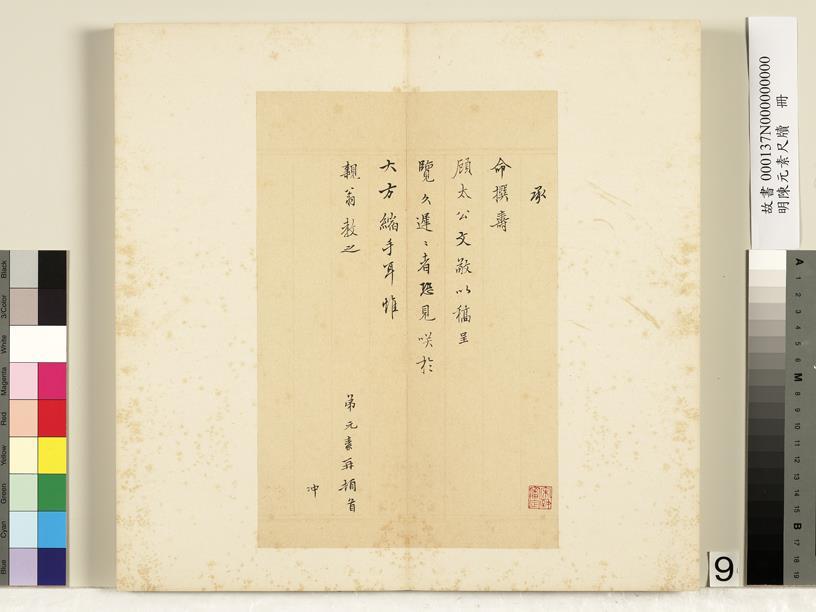 承
命撰壽
顧太公文敬以稿呈
覽久遲〻者恐見咲於
大方縮手耳惟
親翁教之
弟元素再頓首
冲
故書 000137N000000000
明陳元素尺牘 冊
9
Black
3/Color
White
Magenta
Red
Yellow
Green
Cyan
Blue
A
1
2
3
4
5
6
M
8
9
10
11
12
13
14
15
B
17
18
19